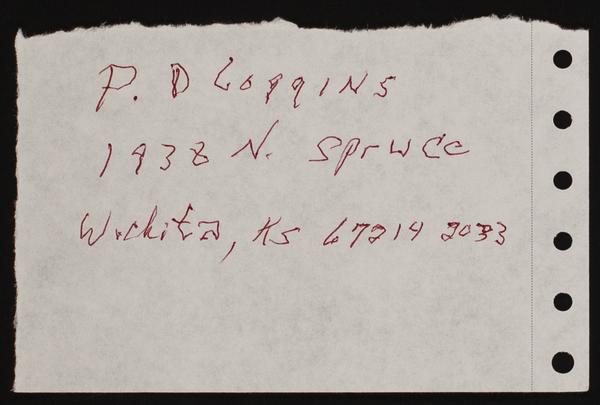 P. D Loggins
1938 N. Spruce
Wichita, Ks 67214 2033